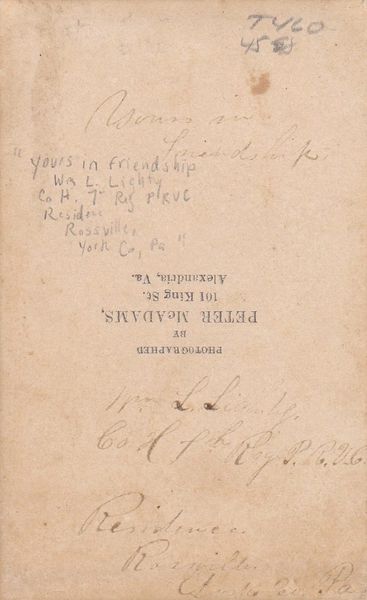 T460
45
Yours in
friendship
"Yours in friendship
Wm L. Lichty
Co H. 7th Reg P.R.V.C
Residence
Rossville,
York Co, Pa"
PHOTOGRAPHED
BY
PETER McADAMS,
101 King St.
Alexandria, Va.
Wm L. Lichty
Co H 7th Reg P. R. V. C.
Residence
Rossville
York Co Pa